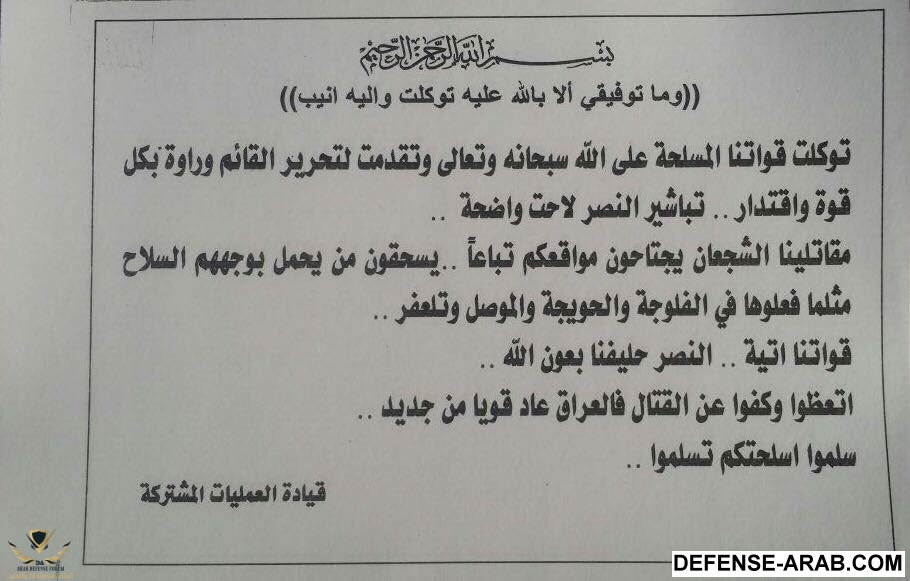 بسم الله الرحمن الرحيم
((وما توفيقي ألا بالله عليه توكلت واليه انيب))
توكلت قواتنا المسلحة على الله سبحانه وتعالى وتقدمت لتحرير القائم وراوة بكل
قوة واقتدار .. تباشير النصر لاحت واضحة ..
مقاتلينا الشجعان يجتاحون مواقعكم تباعاً ..يسحقون من يحمل بوجههم السلاح
مثلما فعلوها في الفلوجة والحويجة والموصل وتلعفر ..
قواتنا اتية .. النصر حليفنا بعون الله ..
اتعظوا وكفوا عن القتال فالعراق عاد قويا من جديد ..
سلموا اسلحتكم تسلموا ..
قيادة العمليات المشتركة
DA
ARAB DEFENSE FORUM
DEFENSE-ARAB.COM